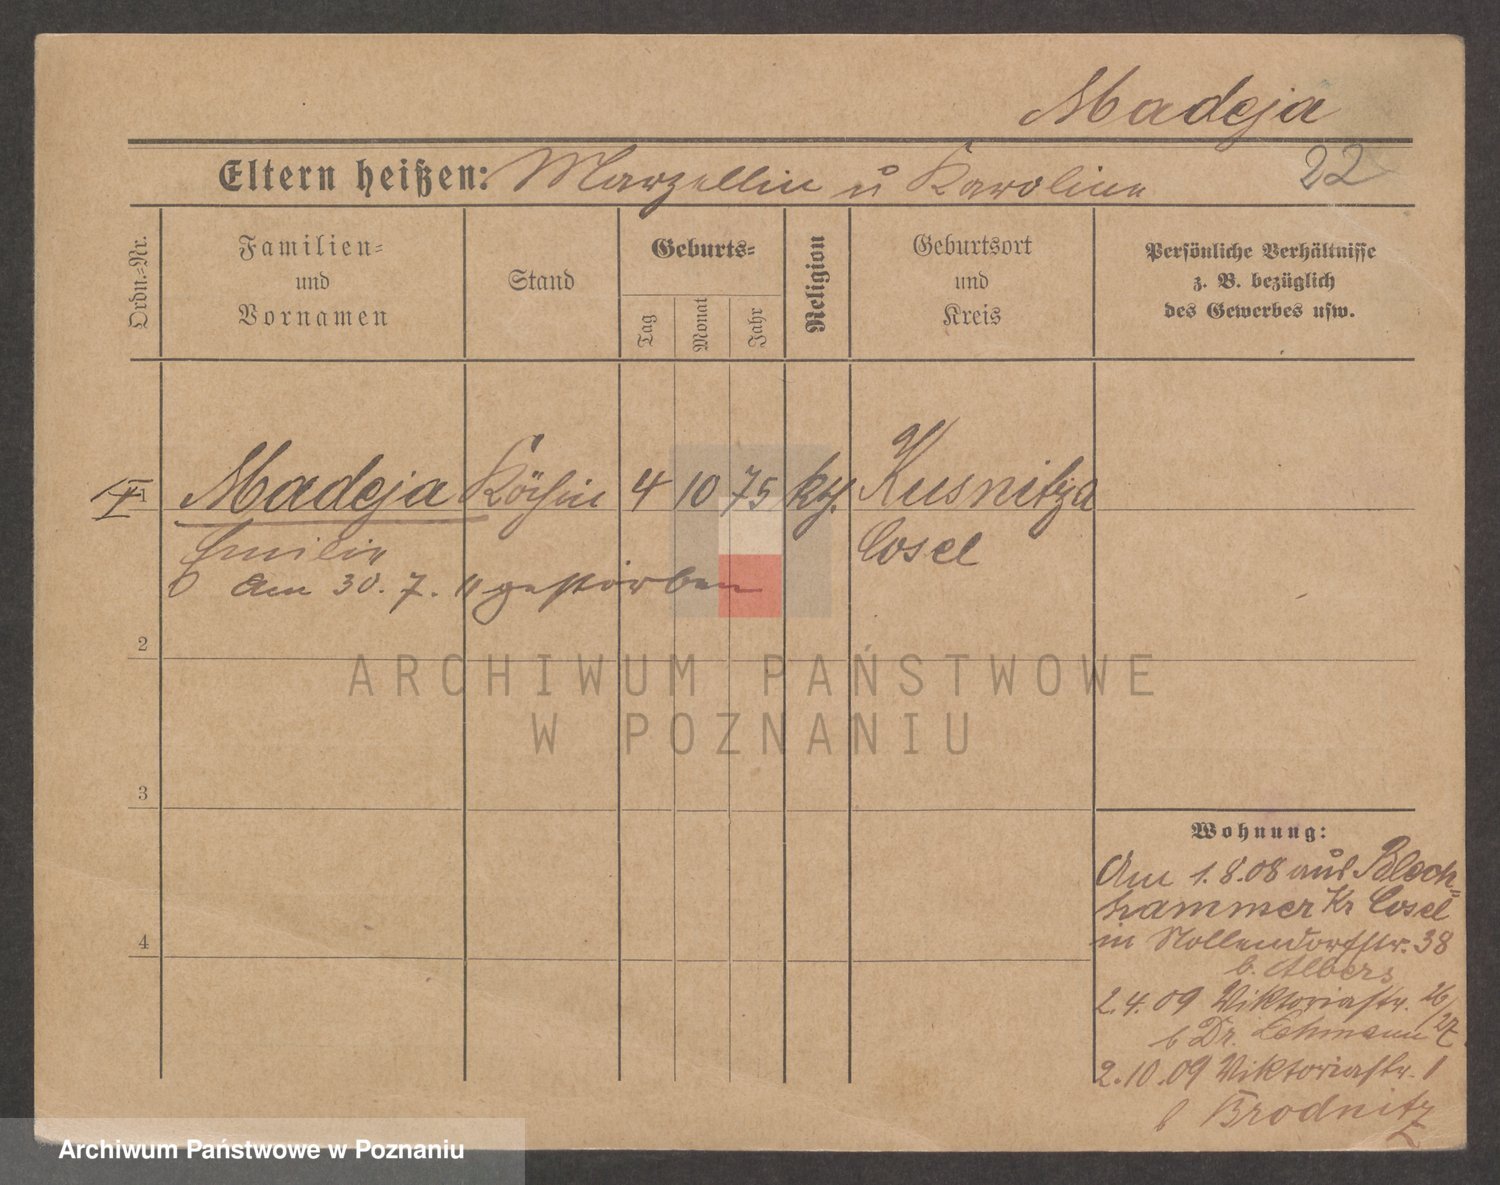 Madeja
22
Eltern heißen: Marzellin u Karoline
Ordn.-Nr.
Familien-
und
Vornamen
Stand
Geburts-
Tag
Monat
Jahr
Religion
Geburtsort
und
Kreis
Persönliche Verhältnisse
z. B. bezüglich
des Gewerbes usw.
1 Madeja Köchin 4 10 75 kth. Kusnitza
Emilie Cosel
Am 30. 7. 11 gestorben
2
ARCHIWUM PAŃSTWOWE
W POZNANIU
3
4
Wohnung:
Am 1. 8. 08 aus Blech-
hammer Kr Cosel
in Nollendorfstr. 38
b. Albers
2. 4. 09 Viktoriastr. 26/27
b Dr. Lehmann
2. 10. 09 Viktoriastr. 1
b Brodnitz
Archiwum Państwowe w Poznaniu